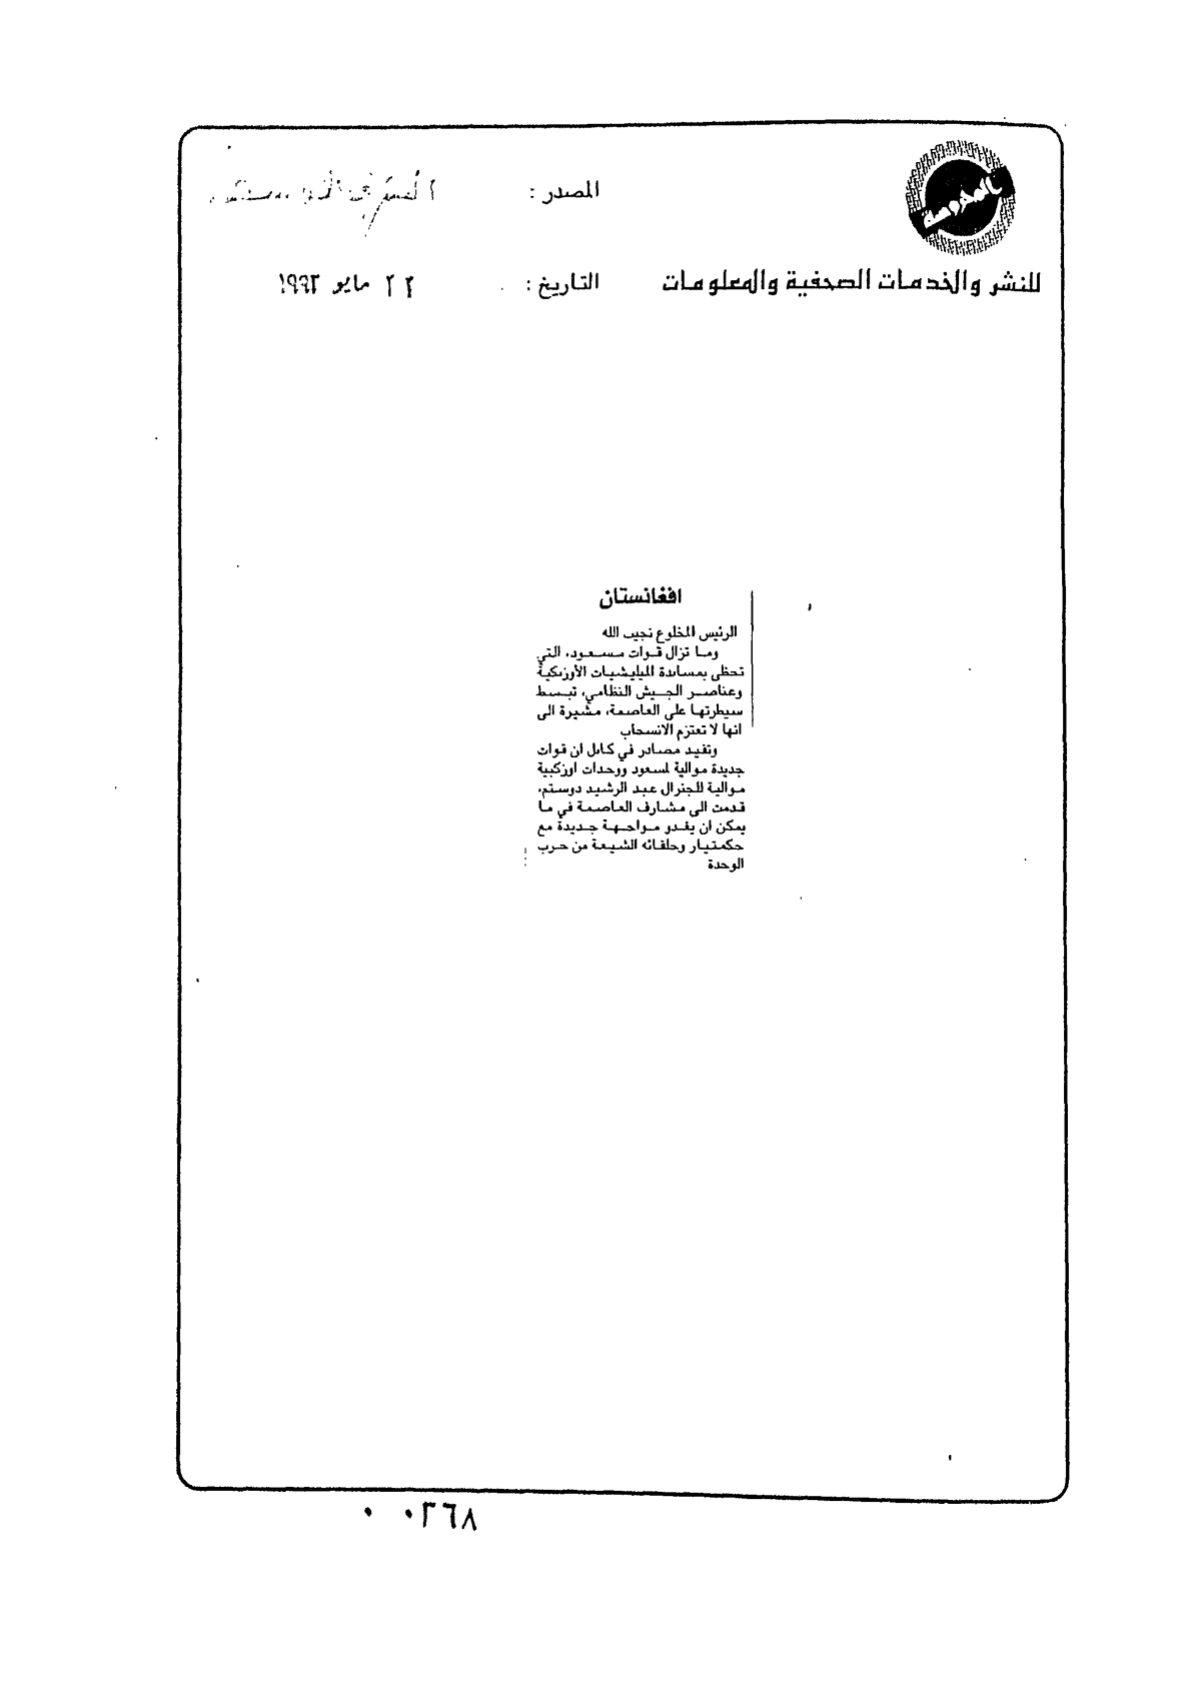 المحروسة
المصدر : الشرق
للنشر والخدمات الصحفية والمعلومات
التاريخ : ٢٢ مايو ١٩٩٢
افغانستان
الرئيس المخلوع نجيب الله
وما تزال قوات مسعود، التي
تحظى بمساندة الميليشيات الأوزبكية
وعناصر الجيش النظامي، تبسط
سيطرتها على العاصمة، مشيرة الى
انها لا تعتزم الانسحاب
وتفيد مصادر في كابل ان قوات
جديدة موالية لمسعود ووحدات اوزبكية
موالية للجنرال عبد الرشيد دوستم،
قدمت الى مشارف العاصمة في ما
يمكن ان يغدو مواجهة جديدة مع
حكمتيار وحلفائه الشيعة من حزب
الوحدة
٠٠٢٦٨